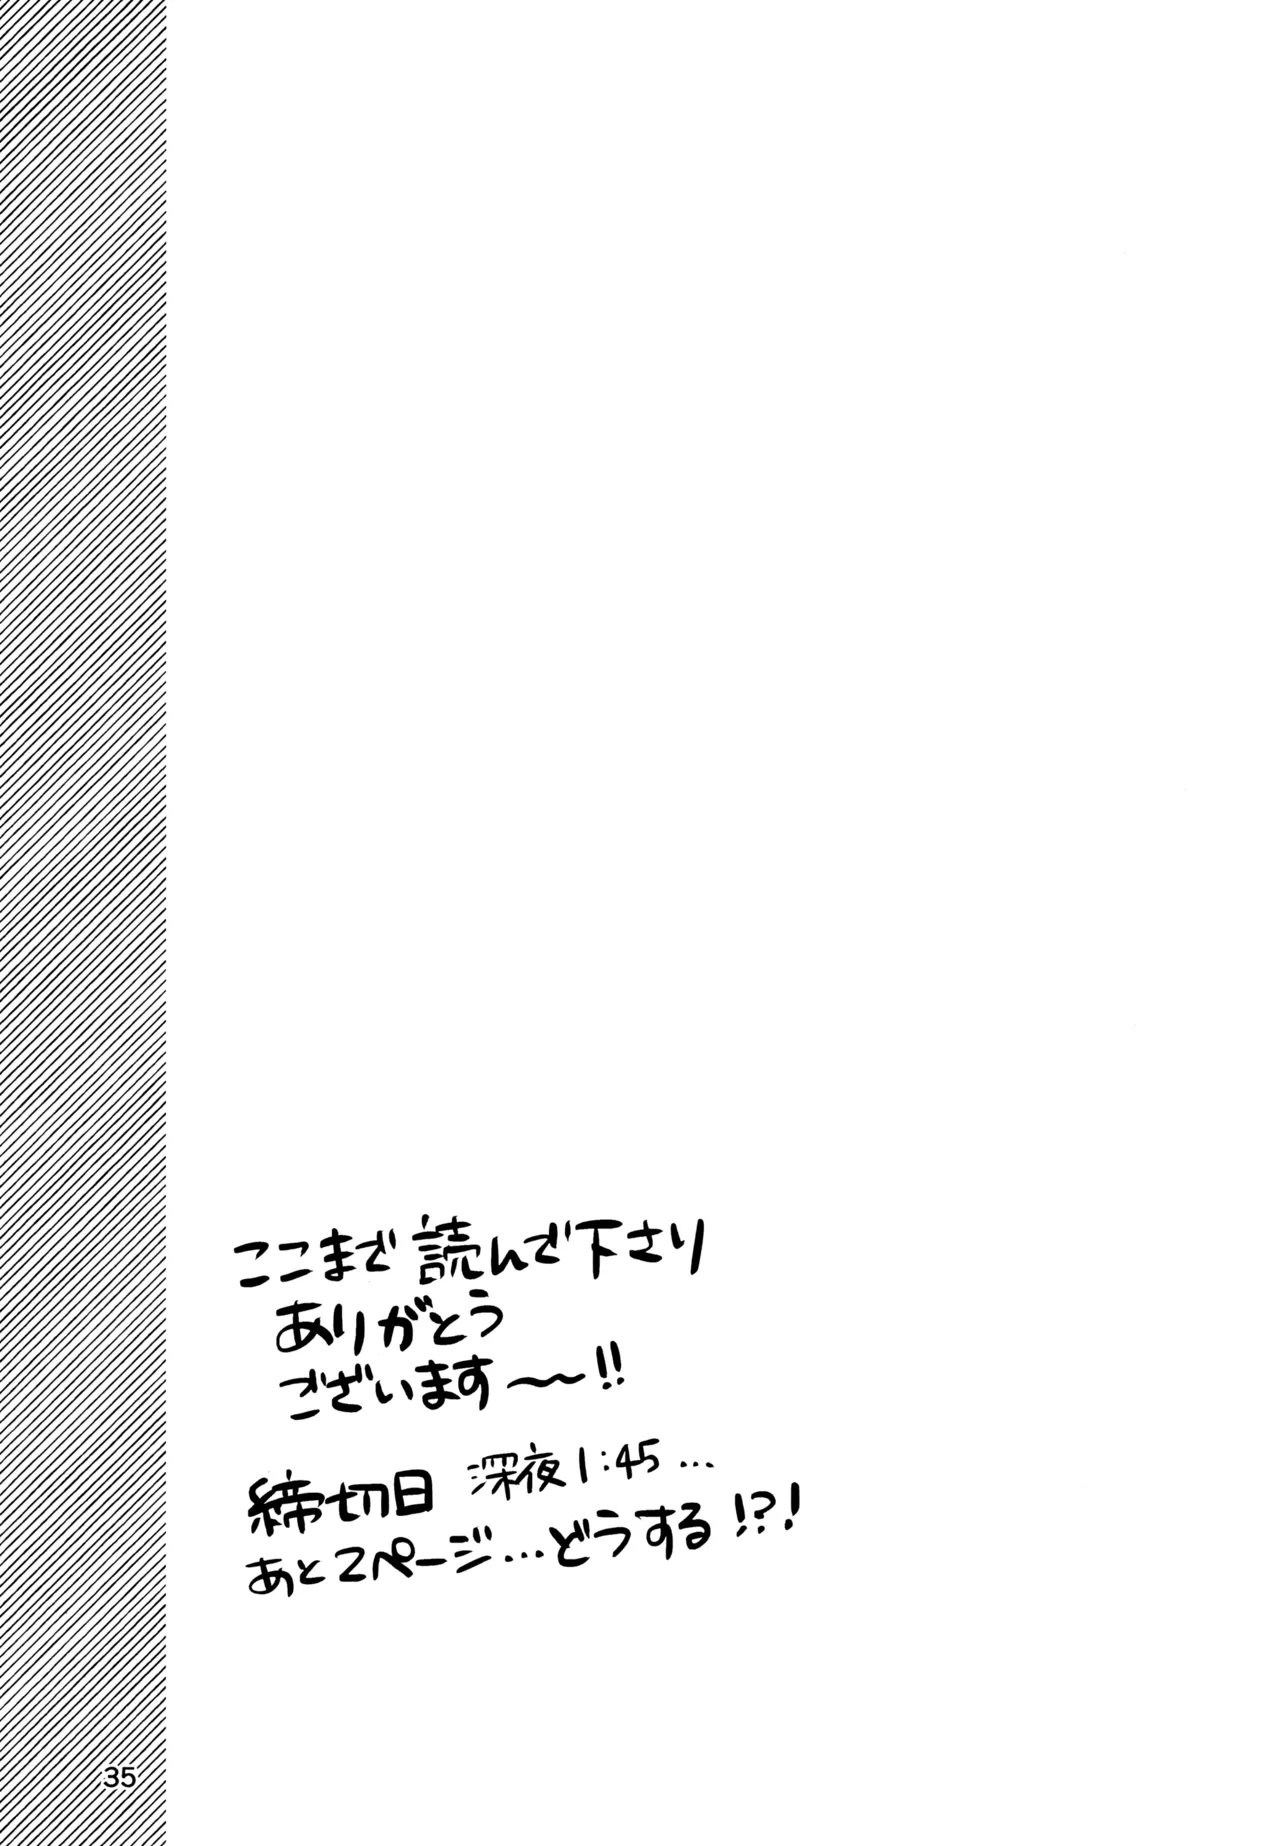 ここまで読んで下さり
ありがとう
ございます〜!!
締切日 深夜1:45...
あと2ページ...どうする!?!
35